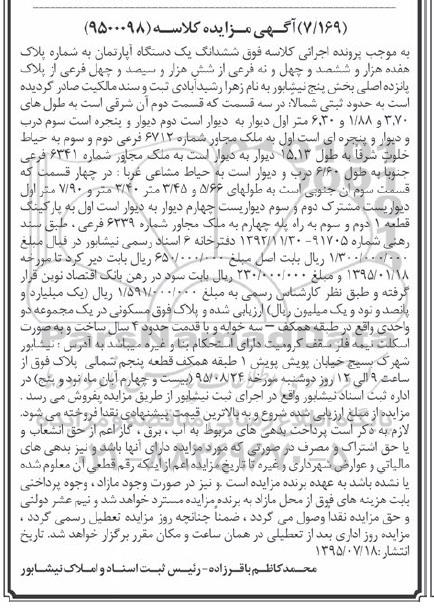 (۷/۱۶۹) آگهی مزایده کلاسه (۹۵۰۰۰۹۸)
به موجب پرونده اجرائی کلاسه فوق ششدانگ یک دستگاه آپارتمان به شماره پلاک
هفده هزار و ششصد و چهل و نه فرعی از شش هزار و سیصد و چهل فرعی از پلاک
پانزده اصلی بخش پنج نیشابور به نام زهرا رشیدآبادی ثبت و سند مالکیت صادر گردیده
است به حدود ثبتی شمالا: در سه قسمت که قسمت دوم آن شرقی است به طول های
۳,۷۰ و ۱/۸۸ و ۶,۳۰ متر اول دیوار به دیوار است دوم دیوار و پنجره است سوم درب
و دیوار و پنجره ای است اول به ملک مجاور شماره ۶۷۱۲ فرعی دوم و سوم به حیاط
خلوت شرقا به طول ۱۵,۱۳ دیوار به دیوار است به ملک مجاور شماره ۶۳۴۱ فرعی
جنوبا به طول ۶/۶۰ درب و دیوار است به حیاط مشاعی غربا : در چهار قسمت که
قسمت سوم آن جنوبی است به طولهای ۵/۶۶ و ۳/۴۵ متر ۳/۴۰ متر و ۷/۹۰ متر اول
دیواریست مشترک دوم و سوم دیواریست چهارم دیوار به دیوار است اول به پارکینگ
قطعه ۱ دوم و سوم به راه پله چهارم به ملک مجاور شماره ۶۳۳۹ فرعی ، طبق سند
رهنی شماره ۹۱۷۰۵- ۱۳۹۲/۱۱/۳۰ دفترخانه ۶ اسناد رسمی نیشابور در قبال مبلغ
۱/۳۰۰/۰۰۰/۰۰۰ ریال بابت اصل مبلغ ۶۵/۰۰۰/۰۰۰ ریال بابت دیر کرد تا مورخه
۱۳۹۵/۰۱/۱۸ و مبلغ ۲۳۰/۰۰۰/۰۰۰ ریال بابت سود در رهن بانک اقتصاد نوین قرار
گرفته و طبق نظر کارشناس رسمی به مبلغ ۱/۵۹۱/۰۰۰/۰۰۰ ریال (یک میلیارد و
پانصد و نود و یک میلیون ریال) ارزیابی شده و پلاک فوق مسکونی در یک مجموعه دو
واحدی واقع در طبقه همکف – سه خوابه و با قدمت حدود ۴ سال ساخت و به صورت
اسکلت نیمه فلز، سقف کرومیت دارای استحکام بنا و غیره میباشد به آدرس : نیشابور
شهرک بسیج خیابان پویش پویش ۱ طبقه همکف قطعه پنجم شمالی پلاک فوق از
ساعت ۹ الی ۱۲ روز دوشنبه مورخه ۹۵/۰۸/۲۴ (بیست و چهارم آبان ماه نود و پنج) در
اداره ثبت اسناد نیشابور واقع در اجرای ثبت نیشابور از طریق مزایده بفروش می رسد .
مزایده از مبلغ ارزیابی شده شروع و به بالاترین قیمت پیشنهادی نقدا فروخته می شود.
لازم به ذکر است پرداخت بدهی های مربوط به آب ، برق ، گاز اعم از حق انشعاب و
یا حق اشتراک و مصرف در صورتی که مورد مزایده دارای آنها باشد و نیز بدهی های
مالیاتی و عوارض شهرداری و غیره تا تاریخ مزایده اعم از اینکه رقم قطعی آن معلوم شده
یا نشده باشد به عهده برنده مزایده است .و نیز در صورت وجود مازاد ، وجوه پرداختی
بابت هزینه های فوق از محل مازاد به برنده مزایده مسترد خواهد شد و نیم عشر دولتی
و حق مزایده نقداً وصول می گردد ، ضمناً چنانچه روز مزایده تعطیل رسمی گردد ،
مزایده روز اداری بعد از تعطیلی در همان ساعت و مکان مقرر برگزار خواهد شد. تاریخ
انتشار:۱۳۹۵/۰۷/۱۸
محمدکاظم باقرزاده - رئیس ثبت اسناد و املاک نیشابور